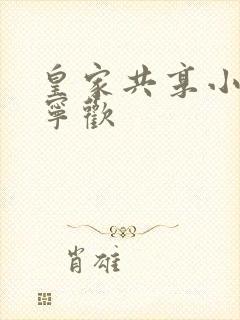 皇家共享小
寧歡
肖雄